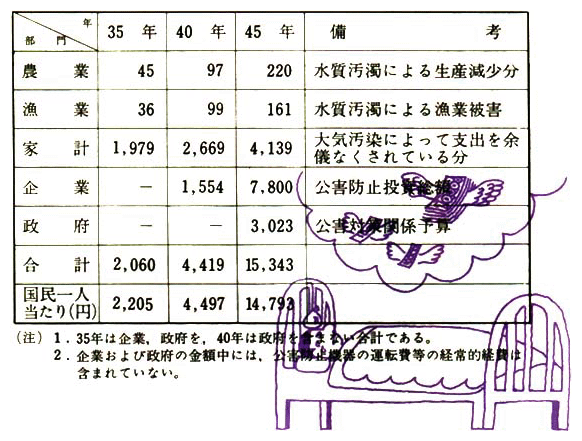 年
部門 35年 40年 45年 備考
農業 45 97 220 水質汚濁による生産減少分
漁業 36 99 161 水質汚濁による漁業被害
家計 1,979 2,669 4,139 大気汚染によって支出を余
儀なくされている分
企業 － 1,554 7,800 公害防止投資総額
政府 － － 3,023 公害対策関係予算
合計 2,060 4,419 15,343
国民一人
当たり(円) 2,205 4,497 14,793
(注) 1．35年は企業，政府を，40年は政府を含まない合計である。
2．企業および政府の金額中には，公害防止機器の運転費等の経常的経費は
含まれていない。